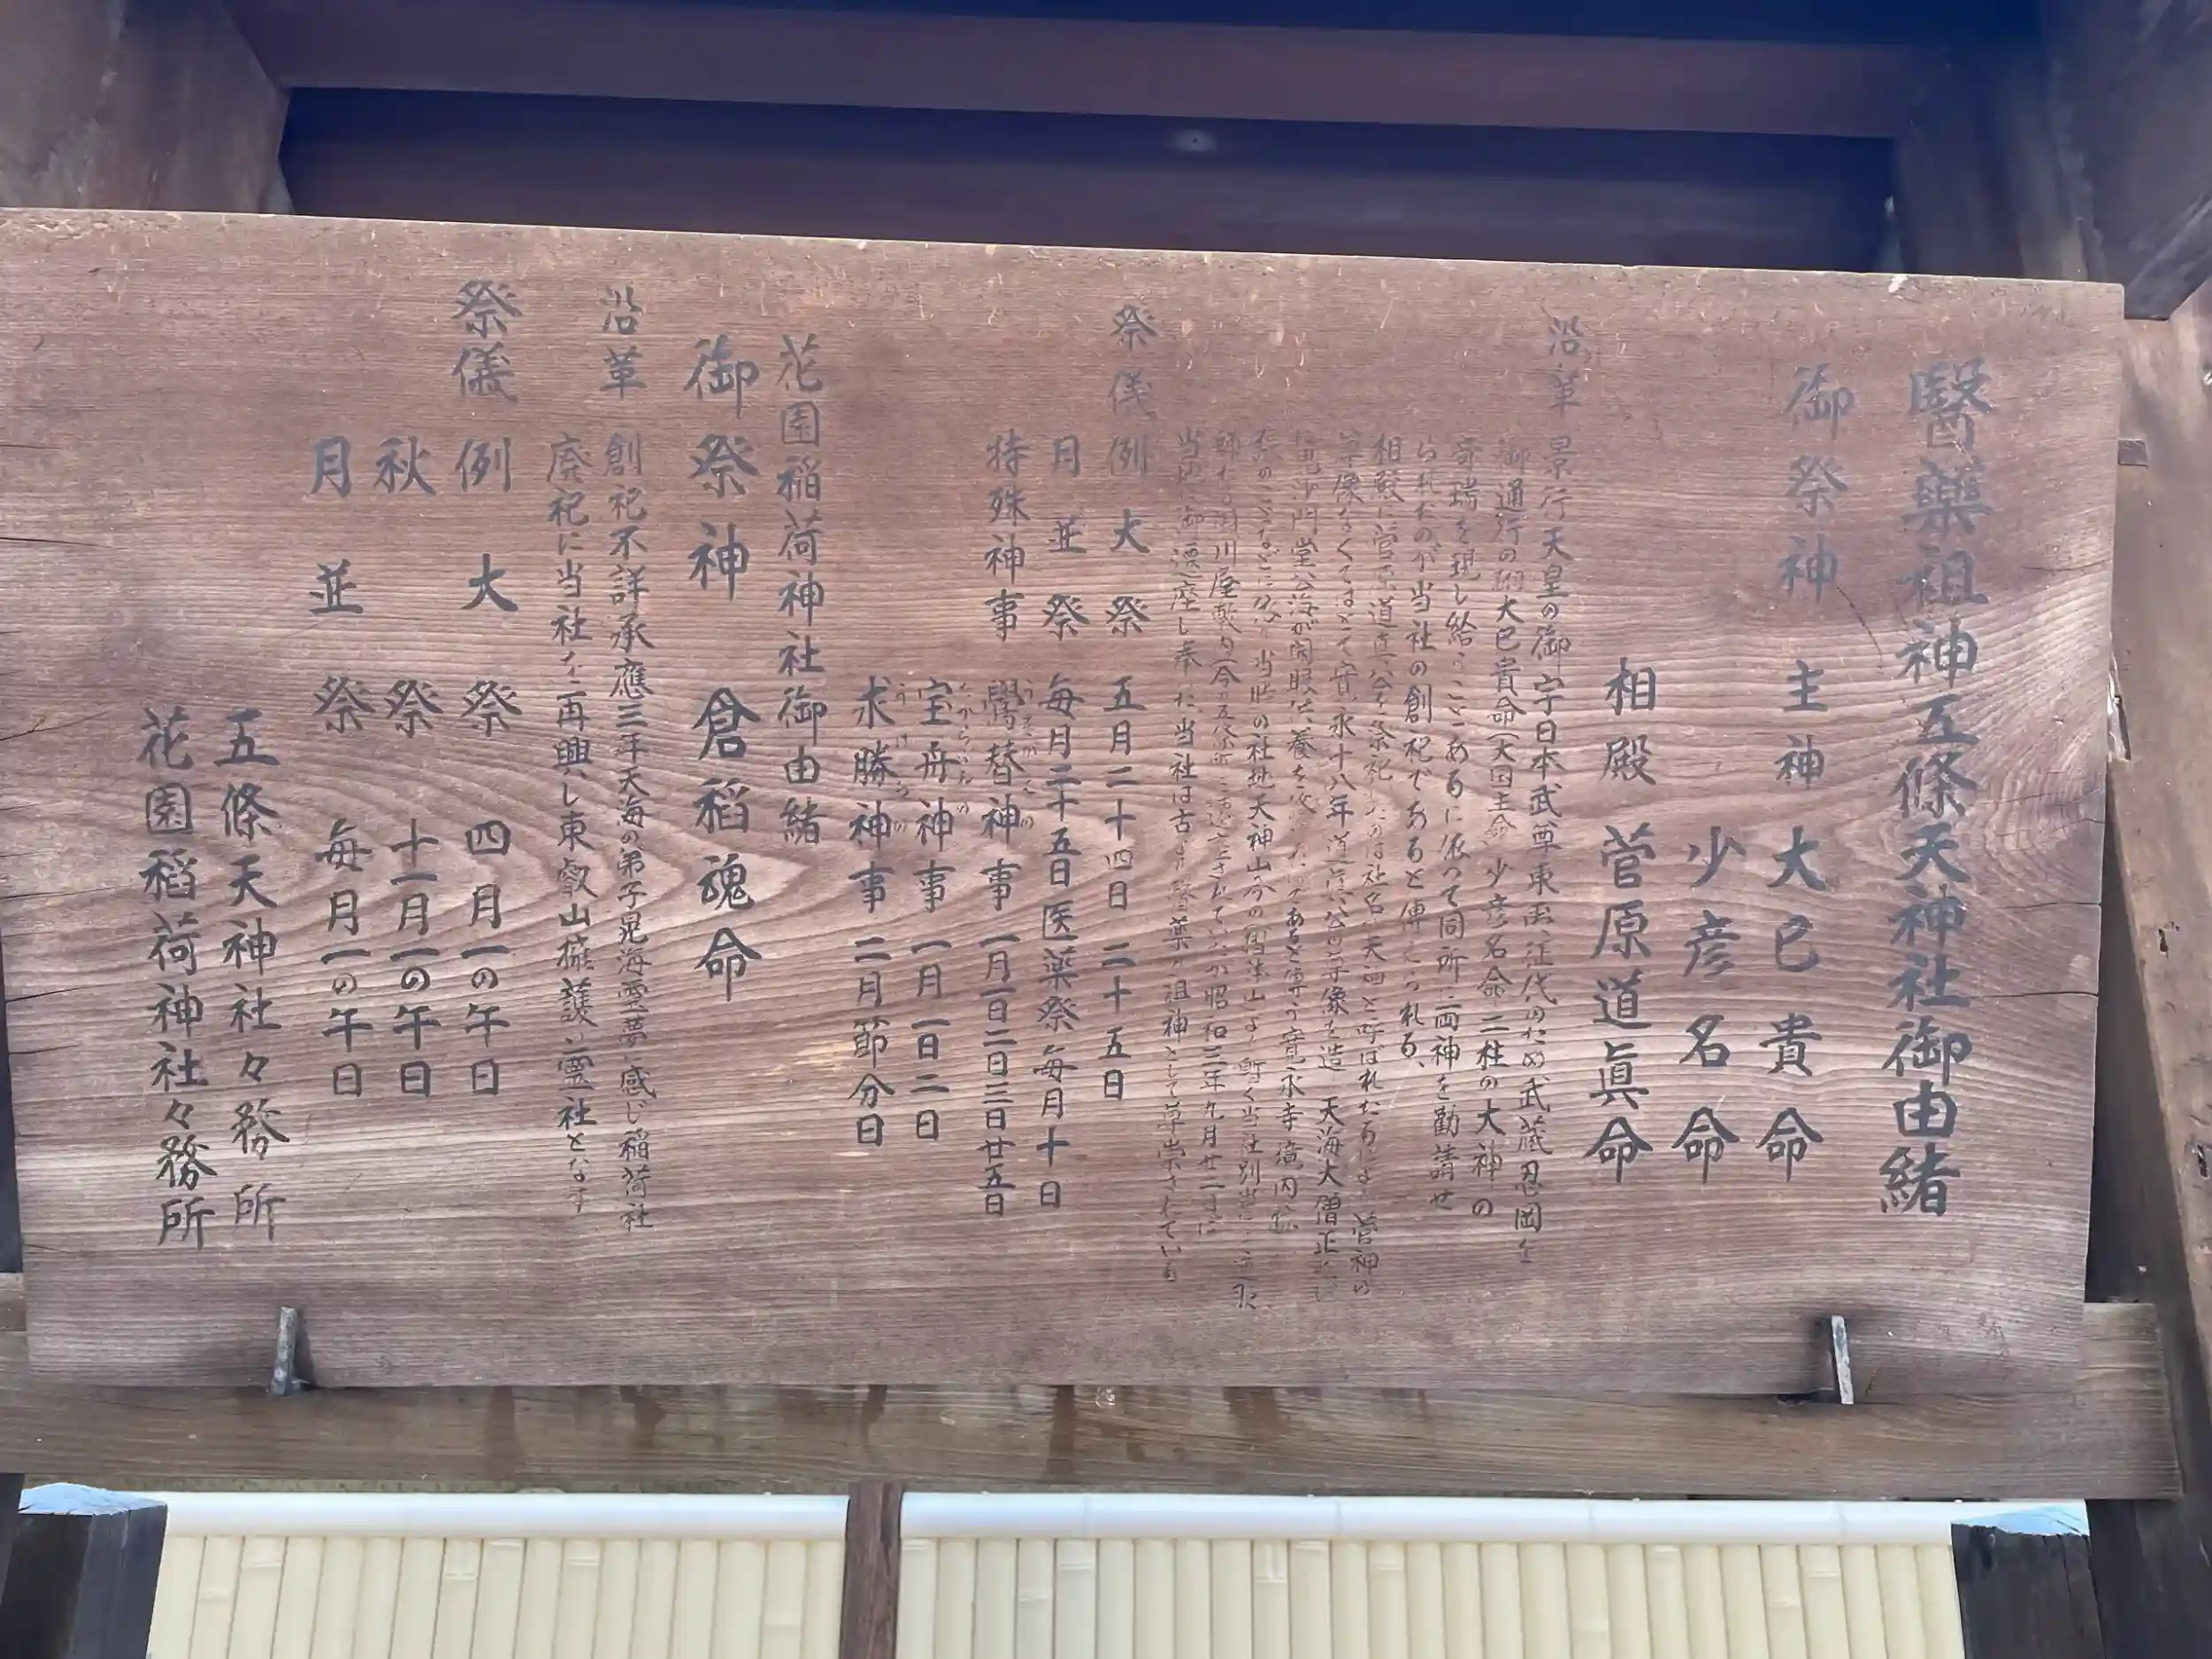 醫薬祖神五條天神社御由緒
御祭神 主神 大己貴命
少彦名命
相殿 菅原道眞命
沿革 景行天皇の御宇日本武尊東夷征伐のため武蔵忍岡を
御通行の大己貴命(大国主命)少彦名命二柱の大神の
奇瑞を現し給うことあるに依って同所に両神を勧請せ
られたのが当社の創祀であると伝えられる、
相殿に菅原道真公を祭祀したのは社名が天神と呼ばれたるにより菅神の
尊像なくてはとて寛永十八年道真公の尊像を造 天海大僧正
毘沙門堂公海が開眼供養を であると 寛永寺境内
当時の社地天神山 暫く当社別当
川屋敷内(今の五條町 昭和三年九月廿一日に
当地に御遷座し奉 た当社は古 医薬の祖神として尊崇されている
祭儀 例大祭 五月二十四日 二十五日
月並祭 毎月二十五日医薬祭毎月十日
特殊神事 鷽替神事 一月一日二日三日廿五日
宝舟神事 一月一日二日
求勝神事 二月節分日
花園稲荷神社御由緒
御祭神 倉稲魂命
沿革 創祀不詳承應三年天海の弟子晃海霊夢に感じ稲荷社
廃祀に当社を再興し東叡山擁護の霊社となす
祭儀 例大祭 四月一の午日
秋祭 十一月一の午日
月並祭 毎月一の午日
五條天神社々務所
花園稲荷神社々務所